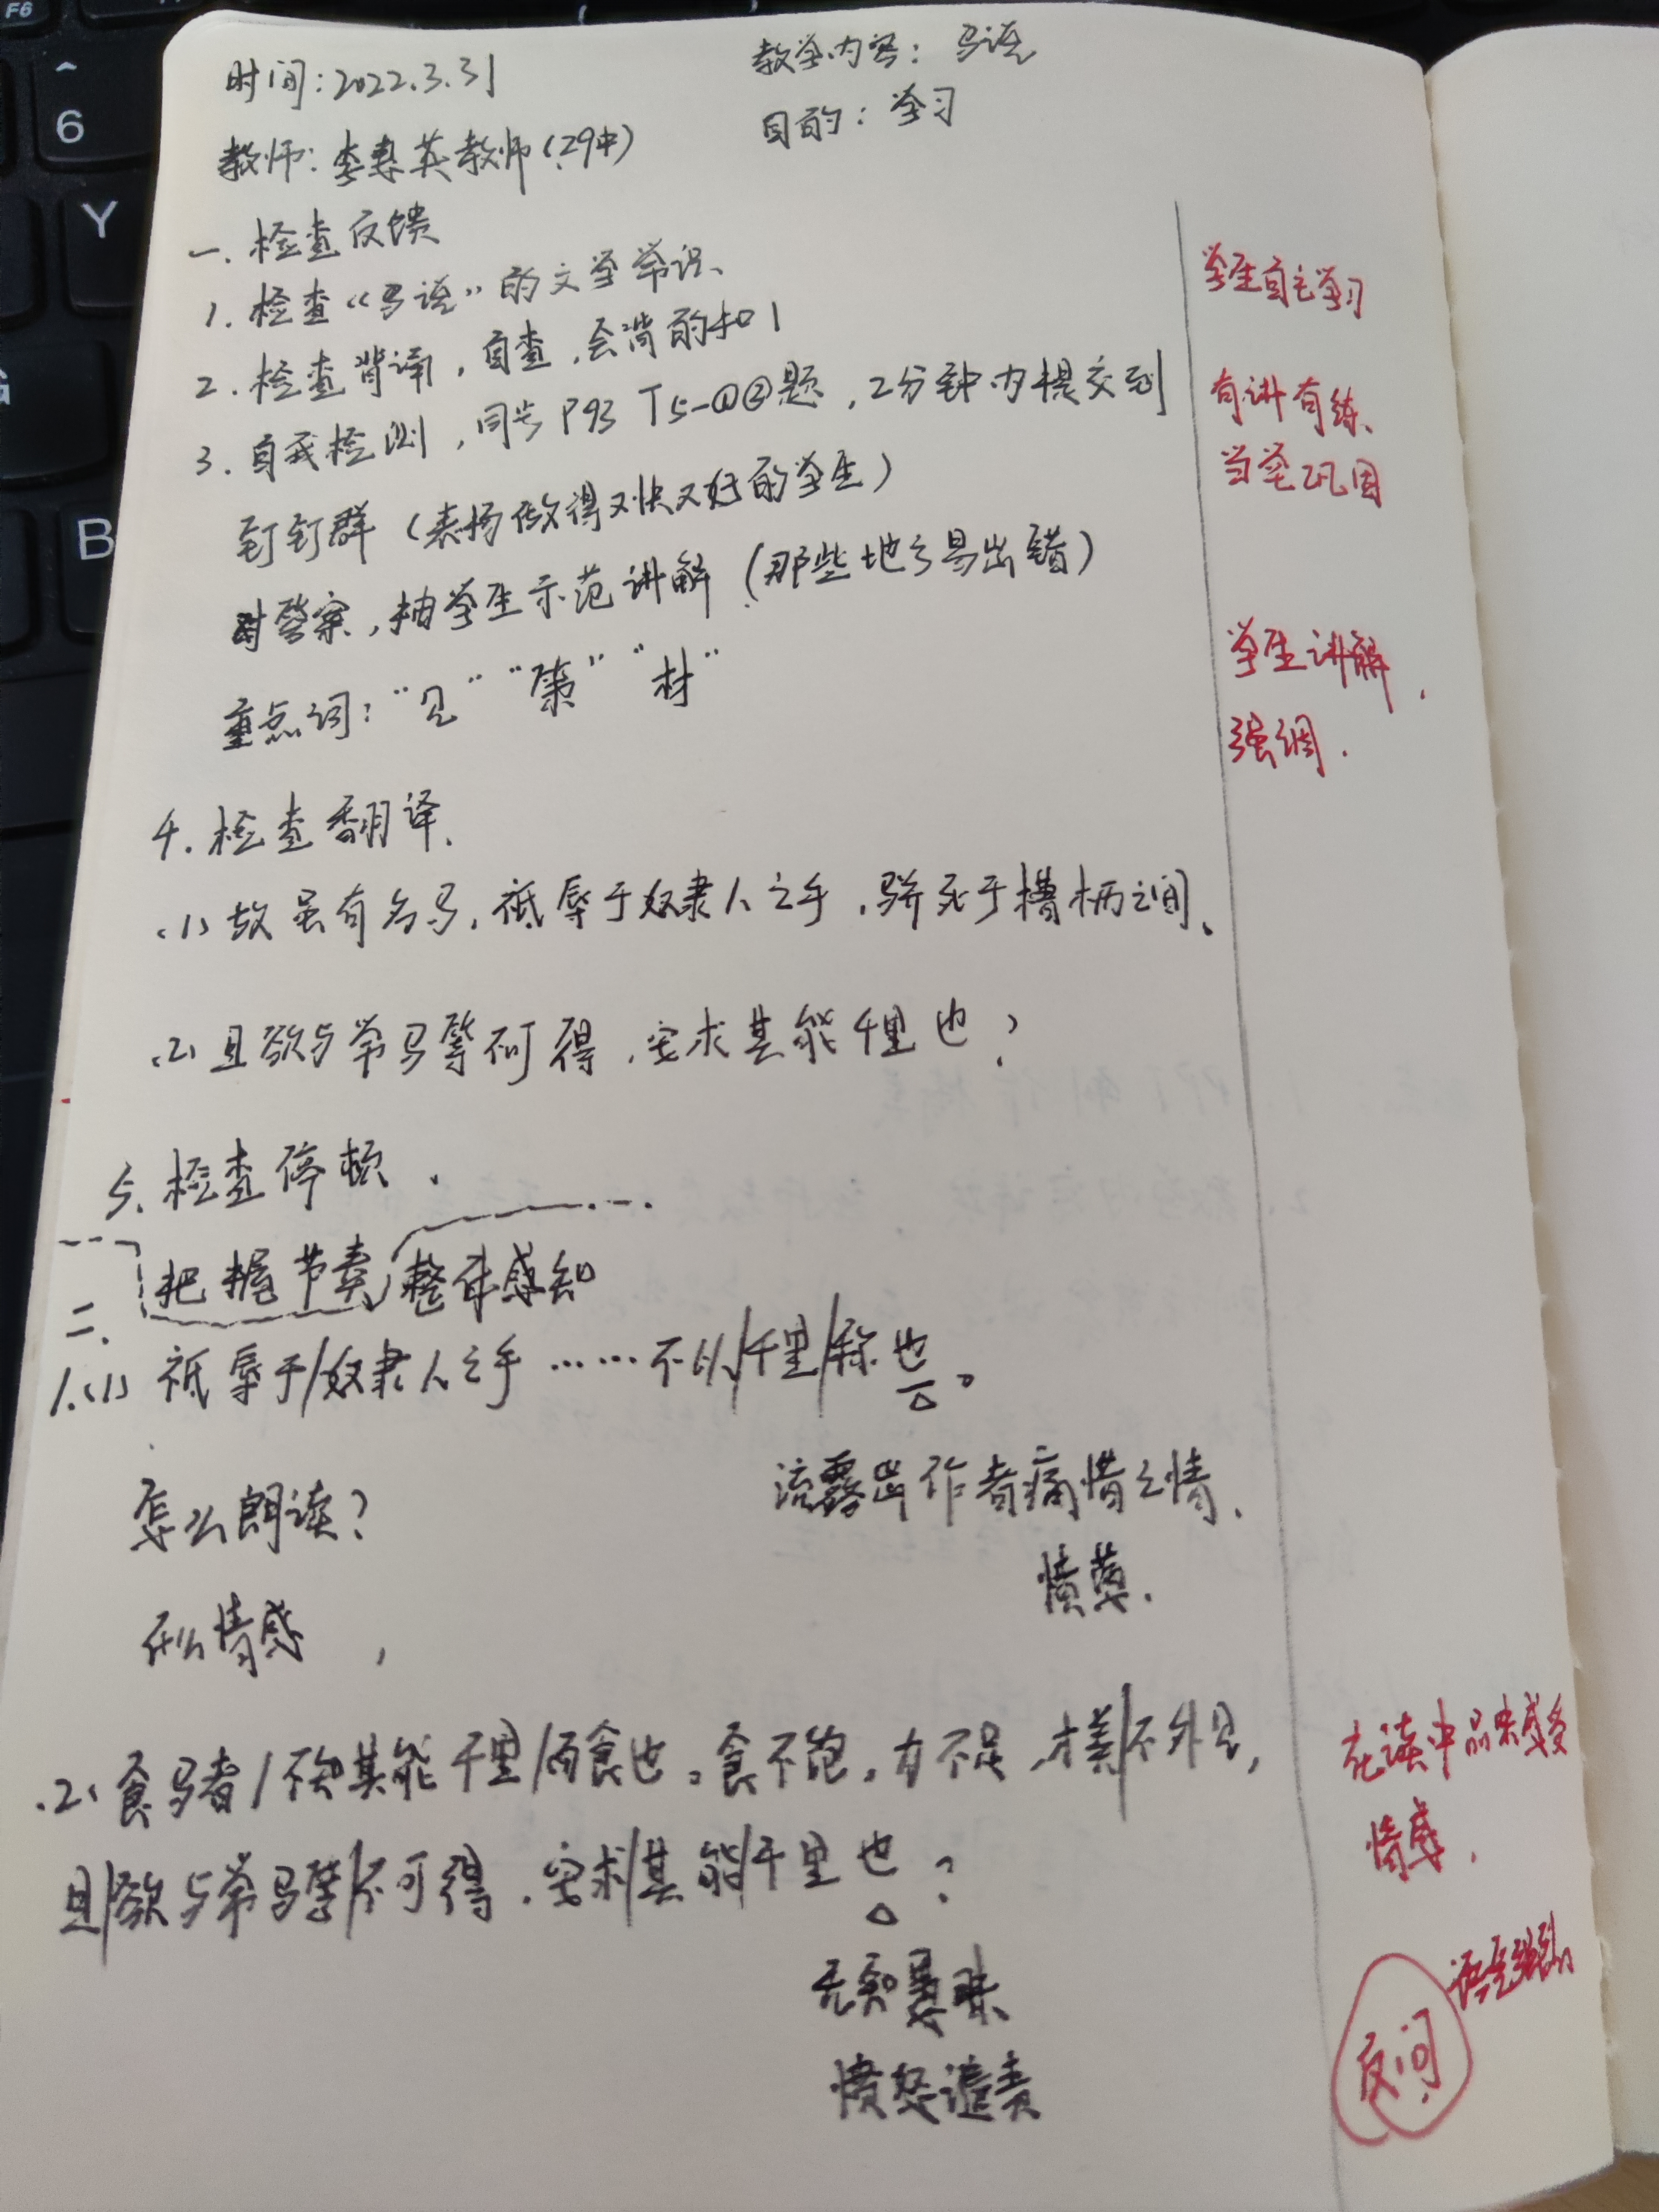 时间：2022.3.31
教学内容：马说
目的：学习
教师：李 英教师（29中）
一.检查反馈
1.检查“马说”的文学常识、
学生自主学习
2.检查背诵，自查，会背的扣1
3.自我检测，同步P93 T5-①②题，2分钟内提交到
有讲有练、
当堂巩固
钉钉群（表扬做得又快又好的学生）
对答案，抽学生示范讲解（那些地方易出错）
学生讲解，
重点词：“见”“策”“材”
强调.
4.检查翻译.
(1)故虽有名马，祗辱于奴隶人之手，骈死于槽枥之间、
(2)且欲与常马等不可得，安求其能千里也？
5.检查停顿.
二.把握节奏，整体感知
1.(1)祗辱于/奴隶人之手……不以/千里/称也。
怎么朗读？
流露出作者痛惜之情、
愤懑.
什么情感，
(2)食马者/不知其能千里/而食也。食不饱，力不足，才美/不外见，
在读中品味感受
情感.
且/欲与常马等/不可得，安求/其能/千里也？
语气强烈
无知愚昧
反问
愤怒谴责
F6
^
6
Y
B